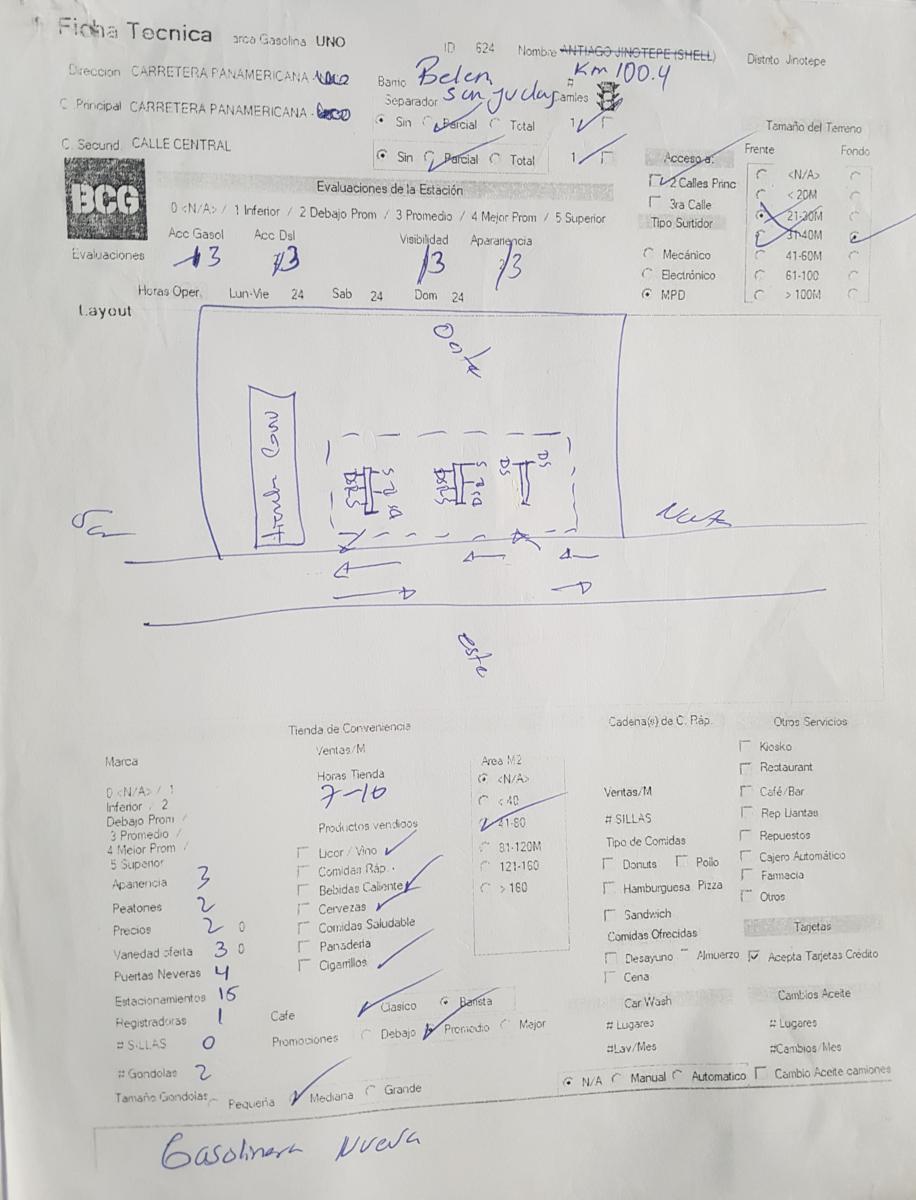 Ficha Tecnica arca Gasolina UNO ID 624 Nombre ANTIAGO JINOTEPE (SHELL) Distrito Jinotepe
Direccion CARRETERA PANAMERICANA Barrio Belen # Km 100.4
C. Principal CARRETERA PANAMERICANA Separador San Judas arriles
Sin Parcial Total 1
C. Secund. CALLE CENTRAL Sin Parcial Total 1
Tamaño del Terreno
Acceso a: Frente Fondo
2 Calles Princ <N/A>
3ra Calle < 20M
Tipo Surtidor 21-30M
31-40M
Mecánico 41-60M
Electrónico 61-100
MPD > 100M
BCG
Evaluaciones de la Estación
0 <N/A> / 1 Inferior / 2 Debajo Prom / 3 Promedio / 4 Mejor Prom / 5 Superior
Acc Gasol Acc Dsl Visibilidad Aparariencia
Evaluaciones 3 3 3 3
Horas Oper. Lun-Vie 24 Sab 24 Dom 24
Layout
Oeste
Tienda Conv
DS
DS
Sur
Norte
este
Marca
0 <N/A> / 1
Inferior / 2
Debajo Prom /
3 Promedio /
4 Mejor Prom /
5 Superior
Apariencia 3
Peatones 2
Precios 2 0
Variedad oferta 3 0
Puertas Neveras 4
Estacionamientos 15
Registradoras 1
# SILLAS 0
# Gondolas 2
Tamaño Gondolas Pequeña Mediana Grande
Tienda de Conveniencia
Ventas/M
Horas Tienda
7-10
Productos vendidos
Licor / Vino
Comidas Ráp.
Bebidas Caliente
Cervezas
Comidas Saludable
Panaderia
Cigarrillos
Cafe Clasico Barista
Promociones Debajo Promedio Mejor
Area M2
<N/A>
< 40
41-80
81-120M
121-160
> 160
Cadena(s) de C. Ráp.
Ventas/M
# SILLAS
Tipo de Comidas
Donuts Pollo
Hamburguesa Pizza
Sandwich
Comidas Ofrecidas
Desayuno Almuerzo
Cena
Car Wash
# Lugares
#Lav/Mes
N/A Manual Automatico
Otros Servicios
Kiosko
Restaurant
Café/Bar
Rep Llantas
Repuestos
Cajero Automático
Farmacia
Otros
Tarjetas
Acepta Tarjetas Crédito
Cambios Aceite
# Lugares
#Cambios/Mes
Cambio Aceite camiones
Gasolinera Nueva